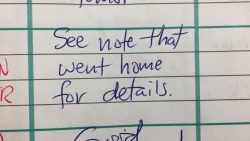 See note that
went home
for details.